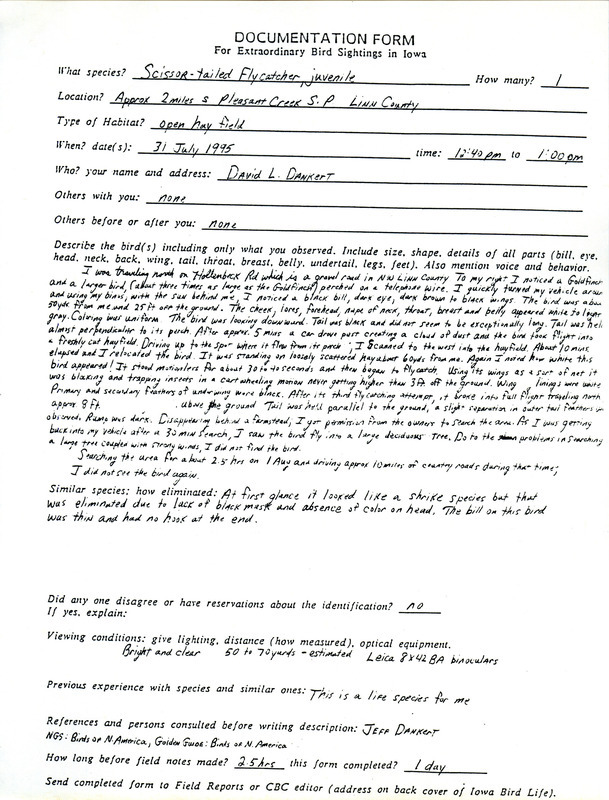 DOCUMENTATION FORM
For Extraordinary Bird Sightings in Iowa
What species? Scissor-tailed Flycatcher, juvenile How many? 1
Location? Approx 2 miles S Pleasant Creek S.P Linn County
Type of Habitat? open hay field
When? date(s): 31 July 1995 time: 12:40 pm to 1:00 pm
Who? your name and address: David L. Dankert
Others with you: none
Others before or after you: none
Describe the bird(s) including only what you observed. Include size, shape, details of all parts (bill, eye,
head, neck, back, wing, tail, throat, breast, belly, undertail, legs, feet). Also mention voice and behavior.
I was traveling north on Hollenbeck Rd which is a gravel road in NW Linn County To my right I noticed a Goldfinch
and a larger bird, (about three times as large as the Goldfinch) perched on a telephone wire. I quickly turned my vehicle around
and using my binos, with the sun behind me, I noticed a black bill, dark eye, dark brown to black wings. The bird was about
50yds from me and 25 ft off the ground. The cheek, lores, forehead, nape of neck, throat, breast and belly appeared white to light
gray. Coloring was uniform The bird was looking downward. Tail was black and did not seem to be exceptionally long. Tail was held
almost perpendicular to its perch. After approx. 5 mins a car drove past creating a cloud of dust and the bird took flight into
a freshly cut hayfield. Driving up to the spot where it flew from its perch, I scanned to the west into the hayfield. About 10 mins
elapsed and I relocated the bird. It was standing on loosely scattered hay about 60yds from me. Again I noted how white this
bird appeared! It stood motionless for about 30 to 40 seconds and then began to flycatch. Using its wings as a sort of net it
was flaking and trapping insects in a cartwheeling motion never getting higher than 3ft off the ground. Wing linings were white
Primary and secondary feathers of underwing were black. After its third flycatching attempt, it broke into full flight traveling north
approx 8 ft above the ground Tail was held parallel to the ground, a slight separation in outer tail feathers was
observed. Rump was dark. Disappearing behind a farmstead, I got permission from the owners to search the area. As I was getting
back into my vehicle after a 30 min search, I saw the bird fly into a large deciduous tree. Do to the problems in searching
a large tree coupled with steady winds, I did not find the bird.
Searching the area for about 2.5 hrs on 1 Aug and driving approx 10 miles of country roads during that time,
I did not see the bird again.
Similar species: how eliminated: At first glance it looked like a shrike species but that
was eliminated due to lack of black mask and absence of color on head. The bill on this bird
was thin and had no hook at the end.
Did any one disagree or have reservations about the identification? no
If yes, explain:
Viewing conditions: give lighting, distance (how measured), optical equipment.
Bright and clear 50 to 70 yards - estimated Leica 8x42 BA binoculars
Previous experience with species and similar ones: This is a life species for me
References and persons consulted before writing description: Jeff Dankert
NGS: Birds of N. America, Golden Guide: Birds of N. America
How long before field notes made? 2.5 hrs this form completed? 1 day
Send completed form to Field Reports or CBC editor (address on back cover of Iowa Bird Life).